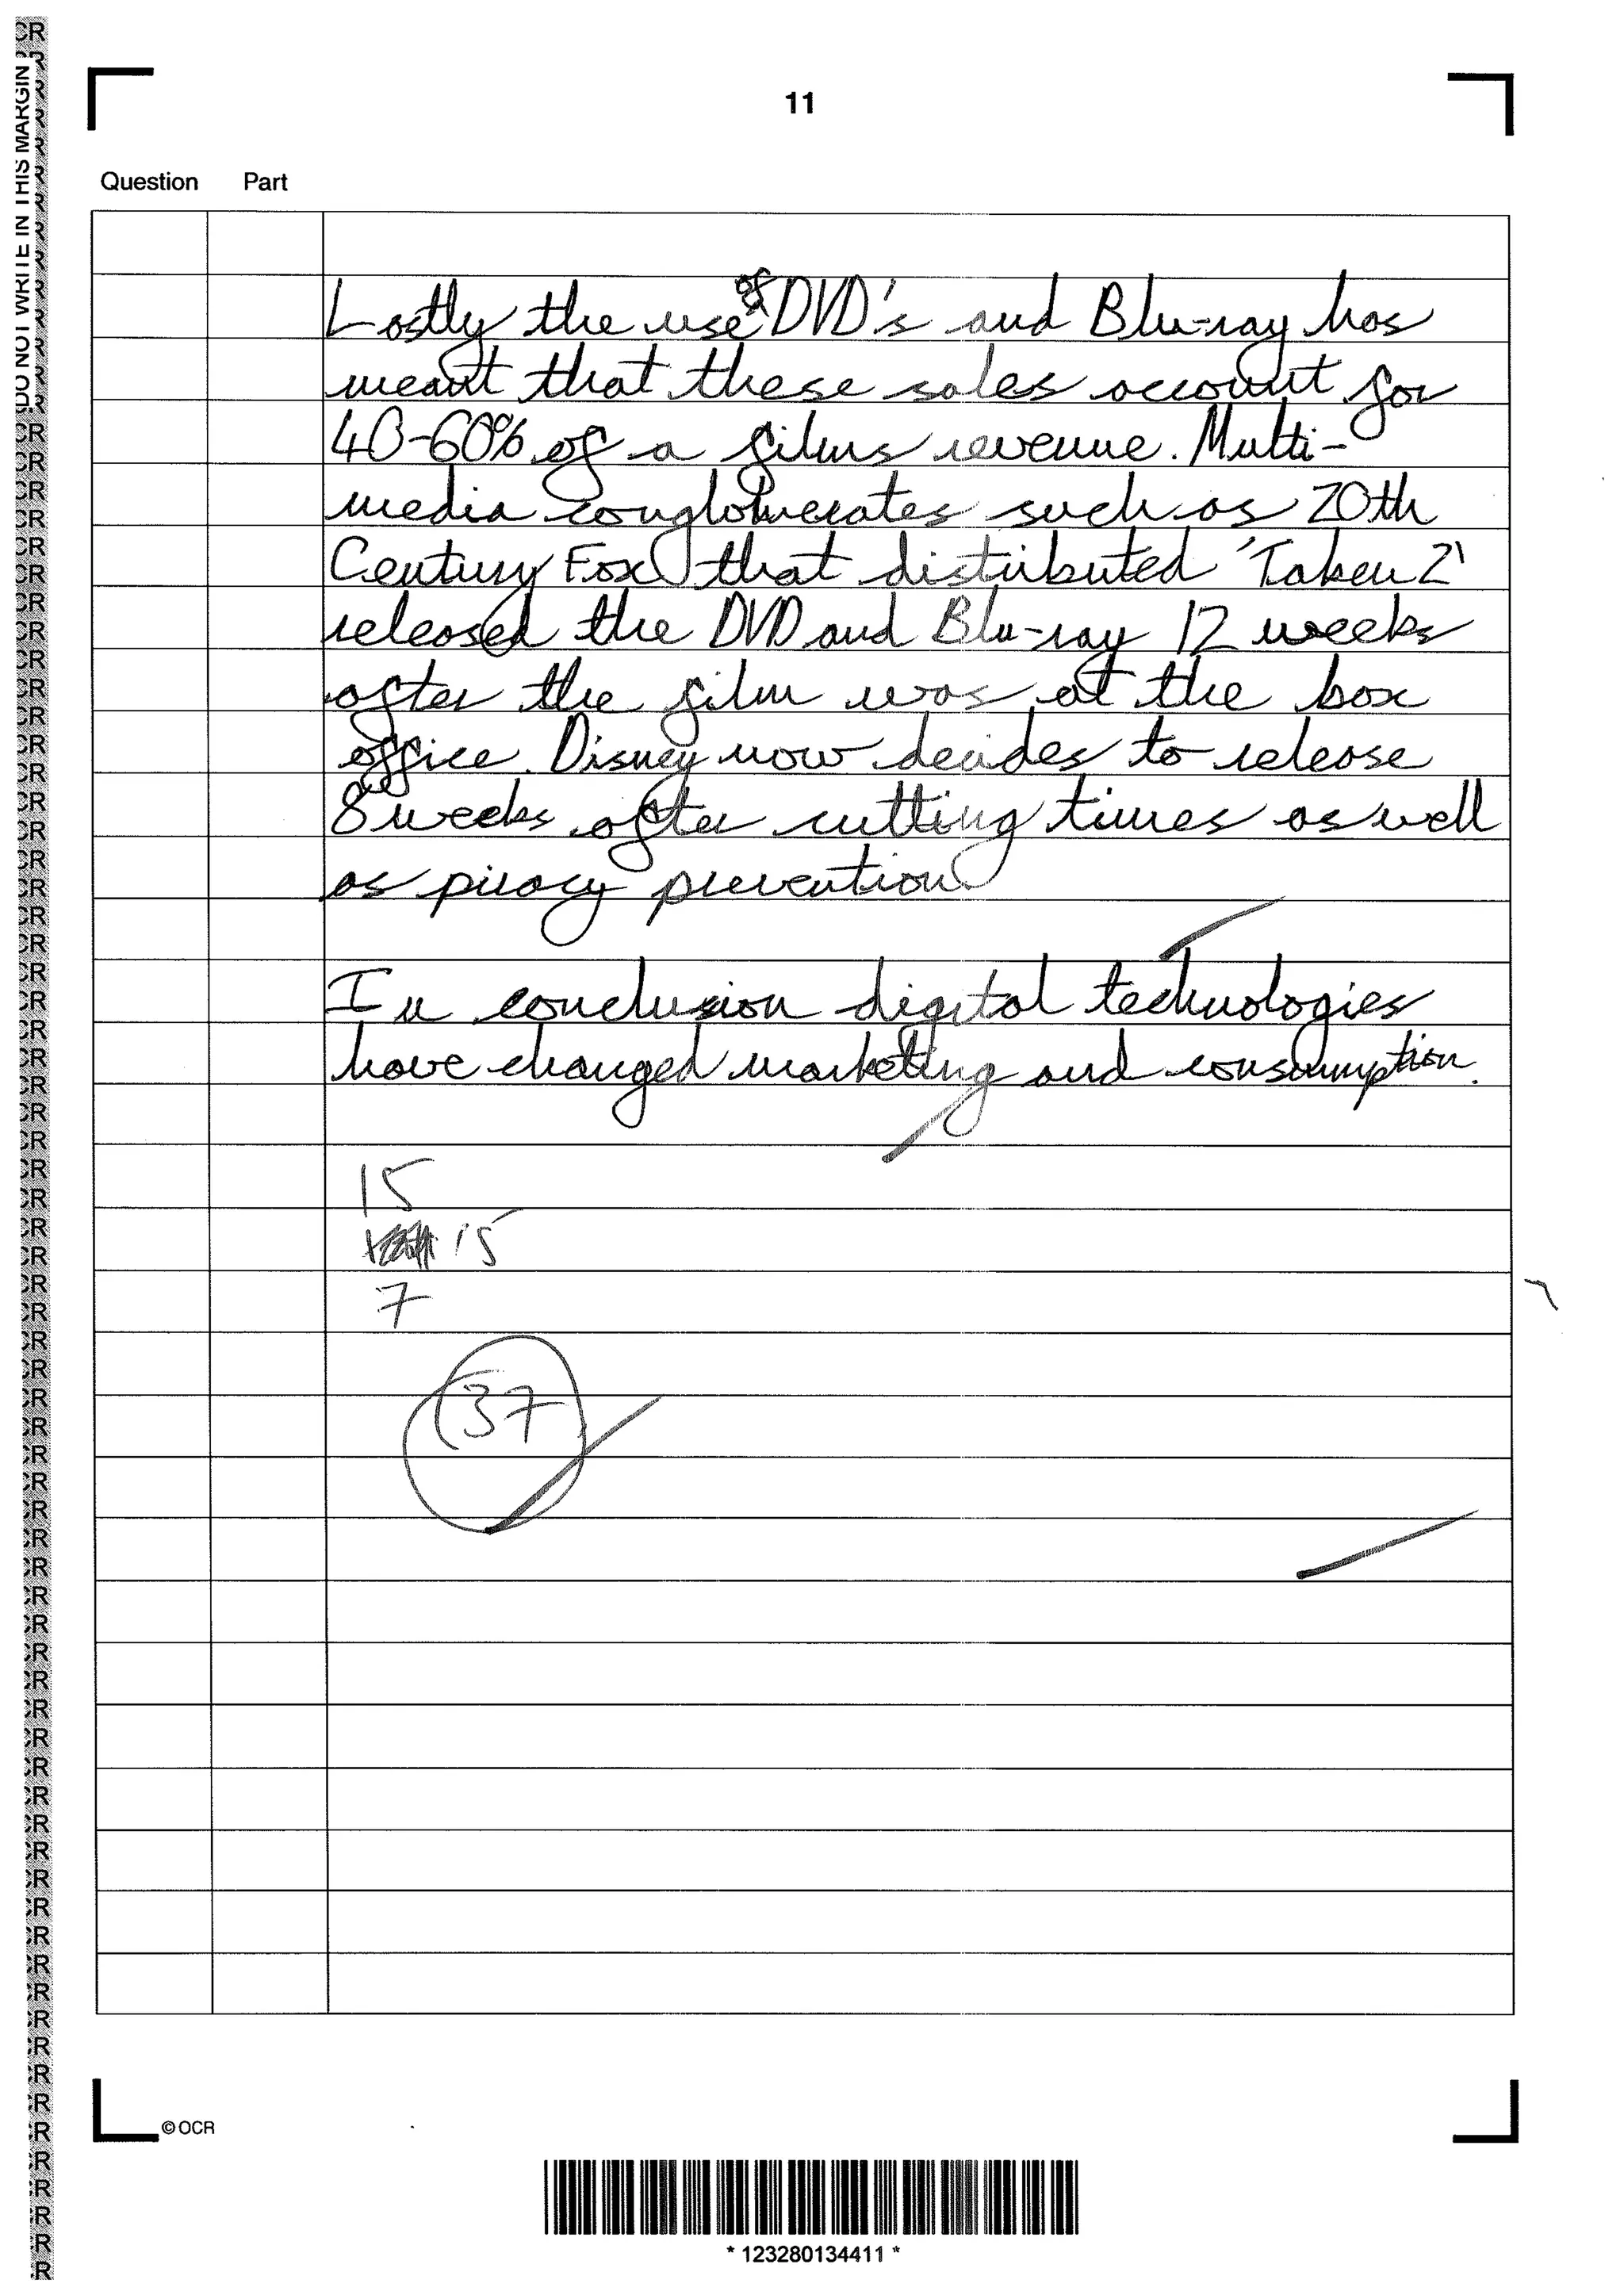 11
DO NOT WRITE IN THIS MARGIN
Question Part
Lastly the use of DVD's and Blu-ray has
meant that these sales account for
40-60% of a films revenue. Multi-
media conglomerates such as 20th
Century Fox that distributed 'Taken 2'
released the DVD and Blu-ray 12 weeks
after the film was at the box
office. Disney now decides to release
8 weeks after cutting times as well
as piracy prevention.
In conclusion digital technologies
have changed marketing and consumption.
15
15
7
37
© OCR
* 123280134411 *